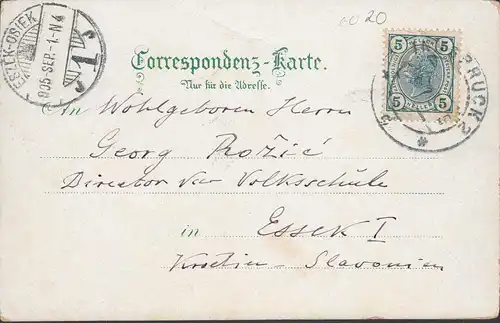 6020
ESZEK-OSIEK
905 SEP.-1.-N4
1
BRUCK 2
5 5
5 HELLER 5
Correspondenz-Karte.
Nur für die Adresse.
An Wohlgeboren Herrn
Georg Rožić
Director der Volksschule
in Essek I
Kroatien-Slavonien